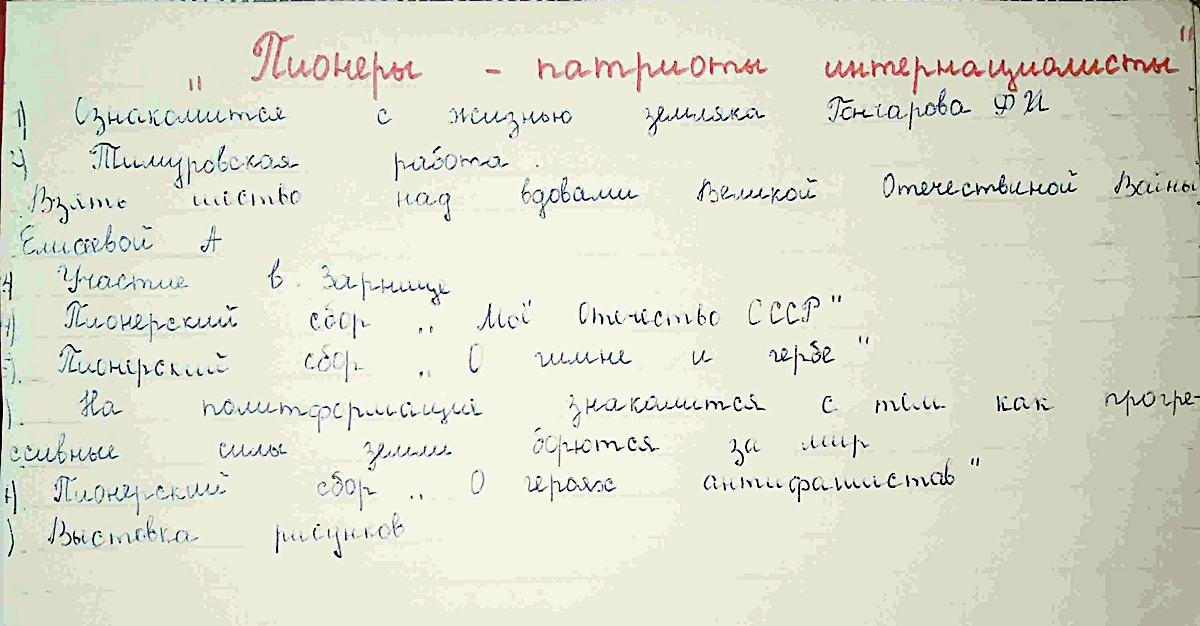 „ Пионеры - патриоты интернационалисты "
1) Ознакомится с жизнью земляка Гончарова Ф И
2) Тимуровская работа.
Взять шество над вдовами Великой Отечествиной Вайны
Елисеевой А
Участие в Зарнице
4) Пионерский сбор „ Моё Отечество СССР"
5). Пионерский сбор „ О гимне и гербе"
). На политформации знакомится с тем как прогре-
ссивные силы земли борются за мир
Пионерский сбор „ О героях антифашистав"
) Выставка рисунков